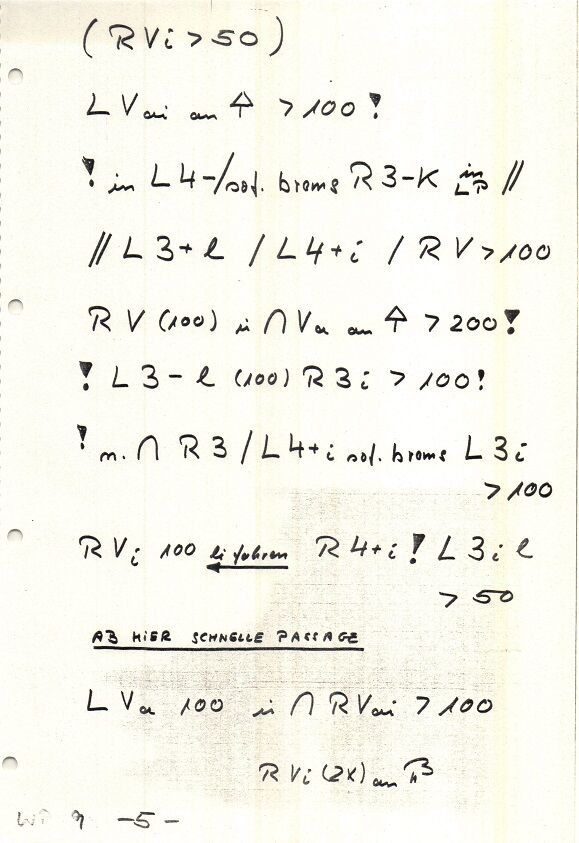 (RVi > 50)
L Vai an > 100!
! in L4-/sof. brems R3-K in LP //
// L3+l / L4+i / RV > 100
RV (100) in ∩ Va an > 200!
! L3-l (100) R3i > 100!
! n. ∩ R3 / L4+i sof. brems L3i
> 100
RVi 100 li fahren R4+i! L3il
> 50
AB HIER SCHNELLE PASSAGE
L Va 100 in ∩ RVai > 100
RVi (2X) an
-5-